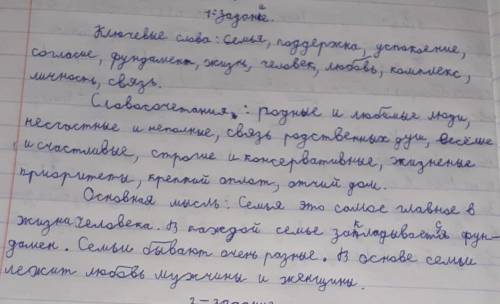 1-задание.
Ключевые слова: Семья, поддержка, успокоение,
согласие, фундамент, жизнь, человек, любовь, комплекс,
личность, связь.
Словосочетания: родные и любимые люди,
несчастные и неполные, связь родственных душ, весёлые
и счастливые, строгие и консервативные, жизненые
приоритеты, крепкий оплот, отчий дом.
Основная мысль: Семья это самое главное в
жизна человека. В каждой семье закладывается фун-
дамен. Семьи бывают очень разные. В основе семьи
лежит любовь мужчины и женщины.
2-задание